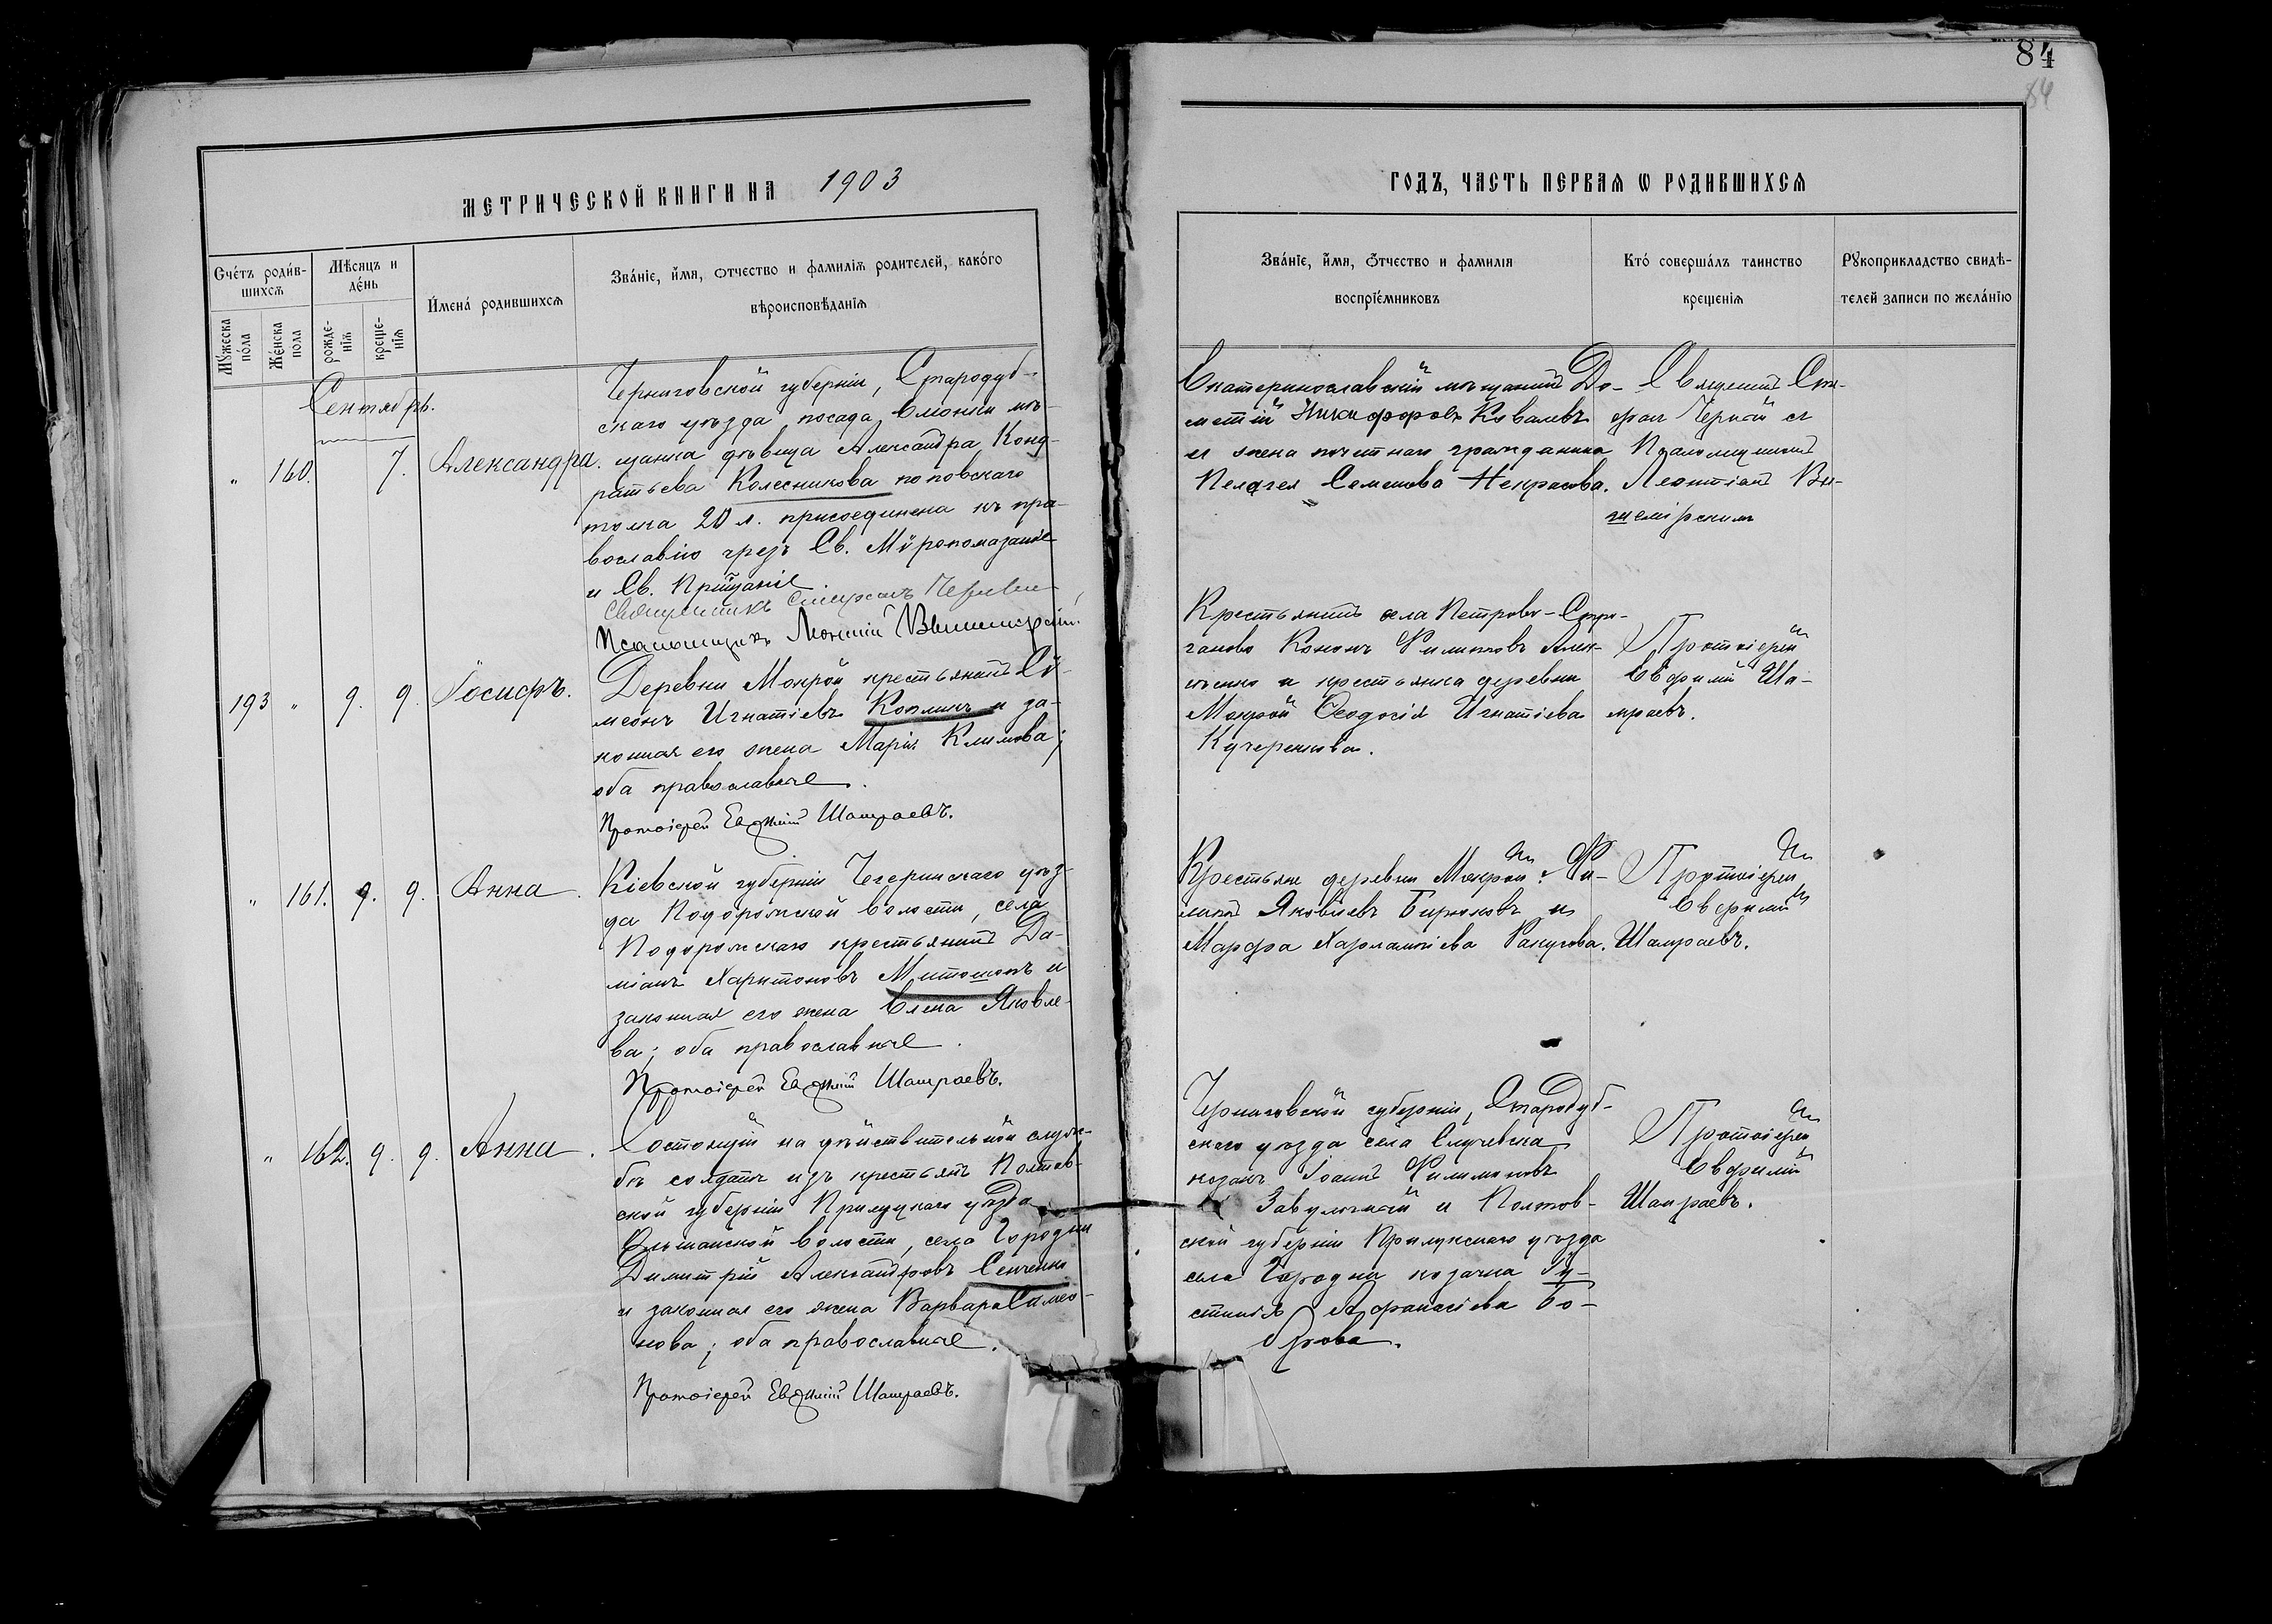 84
84
МЕТРИЧЕСКОЙ КНИГИ НА 1903
ГОДЪ, ЧАСТЬ ПЕРВАѦ Ѡ РОДИВШИХСѦ
Счетъ родив-
шихсѧ
Мѣсяцъ и
день
Имена родившихсѧ
Званіе, имя, отчество и фамилія родителей, какого
вѣроисповѣданія
Мужеска
пола
Женска
пола
рожде-
нія
креще-
нія
Званіе, имя, отчество и фамилія
воспріемниковъ
Кто совершалъ таинство
крещенія
Рукоприкладство свидѣ-
телей записи по желанію
Сентябрь.
" 160. 7. Александра.
Черниговской губерніи, Стародуб-
скаго уѣзда посада Еліонки мѣ-
щанка дѣвица Александра Конд-
ратьева Колесникова поповскаго
толка 20 л. присоединена къ пра-
вославію чрезъ Св. Мѵропомазаніе
и Св. Причащаніе
Священникъ
Псаломщикъ Леонтій
Екатеринославскій мѣщанинъ До-
метій Никифоровъ Ковалевъ
и жена почетнаго гражданина
Пелагея Семенова Некрасова.
Священникъ Сте-
фанъ Черный съ
Псаломщикомъ
Леонтіемъ
193 " 9. 9. Іосифъ.
Деревни Мокрой крестьянинъ Сѵ-
меонъ Игнатіевъ Коплинъ и за-
конная его жена Марія Климова;
оба православные.
Протоіерей Евѳимій Шамраевъ.
Крестьянинъ села Петрово-
Кононъ Филиповъ Алек-
сѣенко и крестьянка деревни
Мокрой Ѳеодосія Игнатіева
Кучеренкова.
Протоіерей
Евфимій Ша-
мраевъ.
" 161. 9. 9. Анна.
Кіевской губерніи Чегеринскаго уѣз-
да Подорожской волости, села
Подорожскаго крестьянинъ Да-
міанъ Харитоновъ Митошопъ и
законная его жена Елена Яковле-
ва; оба православные.
Протоіерей Евѳимій Шамраевъ.
Крестьяне деревни Мокрой: Фи-
липъ Яковлевъ Бирюковъ и
Марфа Харлампіева Ракугова.
Протоіерей
Евфимій
Шамраевъ.
" 162. 9. 9. Анна.
Состоящій на дѣйствительной служ-
бѣ солдатъ изъ крестьянъ Полтав-
ской губерніи Прилукскаго уѣзда
волости, села Городни
Димитрій Александровъ Сенченко
и законная его жена Варвара Симео-
нова; оба православные.
Протоіерей Евѳимій Шамраевъ.
Черниговской губерніи, Стародуб-
скаго уѣзда села Случевска
козакъ Іоаннъ Филимоновъ
Завулочный и Полтав-
ской губерніи Прилукскаго уѣзда
села Городни козачка Іу-
стинія Афанасіева Бо-
брова.
Протоіерей
Евфимій
Шамраевъ.